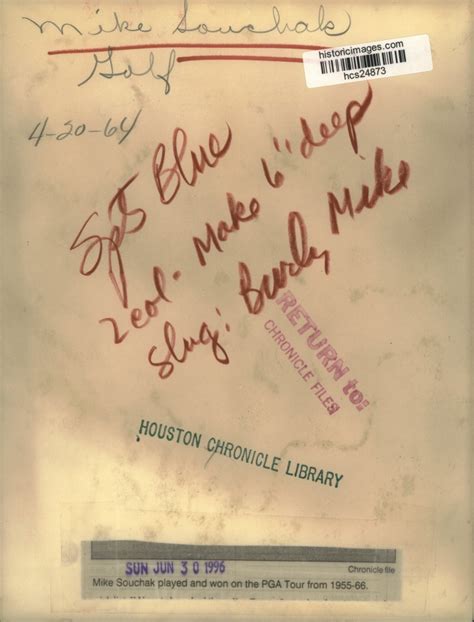 Mike Souchak
Golf
historicimages.com
hcs24873
4-20-64
Spts Blue
2 col - Make 6" deep
slug: Burly Mike
RETURN to:
CHRONICLE FILES
HOUSTON CHRONICLE LIBRARY
SUN JUN 30 1996
Chronicle file
Mike Souchak played and won on the PGA Tour from 1955-66.